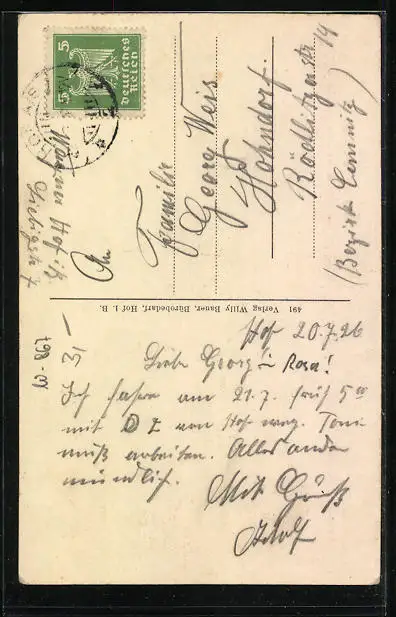 5 Deutsches Reich 5
An
Familie
Georg Weis
Hohndorf.
Rödlitzerstr. 14
(Bezirk Chemnitz)
Hof i/B.
491 Verlag Willy Bauer, Bürobedarf, Hof i. B.
Hof 20.7.26
Liebe Georg u Rosa!
Ich fahre am 21.7. früh 5 00
mit D Z von Hof weg. Toni
muß arbeiten. Alles andre
mündlich.
Mit Gruß
Adolf